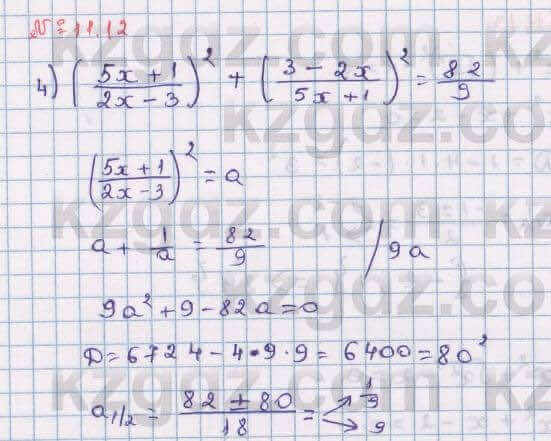 № 11.12
4) ((5x+1)/(2x-3))² + ((3-2x)/(5x+1))² = 82/9
((5x+1)/(2x-3))² = a
a + 1/a = 82/9 /9a
9a² + 9 - 82a = 0
D = 6724 - 4·9·9 = 6400 = 80²
a1/2 = (82±80)/18 = 1/9
9
kzgdz.com